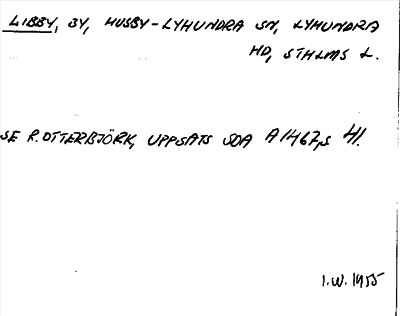 LIBBY, BY, HUSBY-LYHUNDRA SN, LYHUNDRA
HD, STHLMS L.
SE R. OTTERBJÖRK, UPPSATS SOA A 1467, S 41.
I.W. 1955